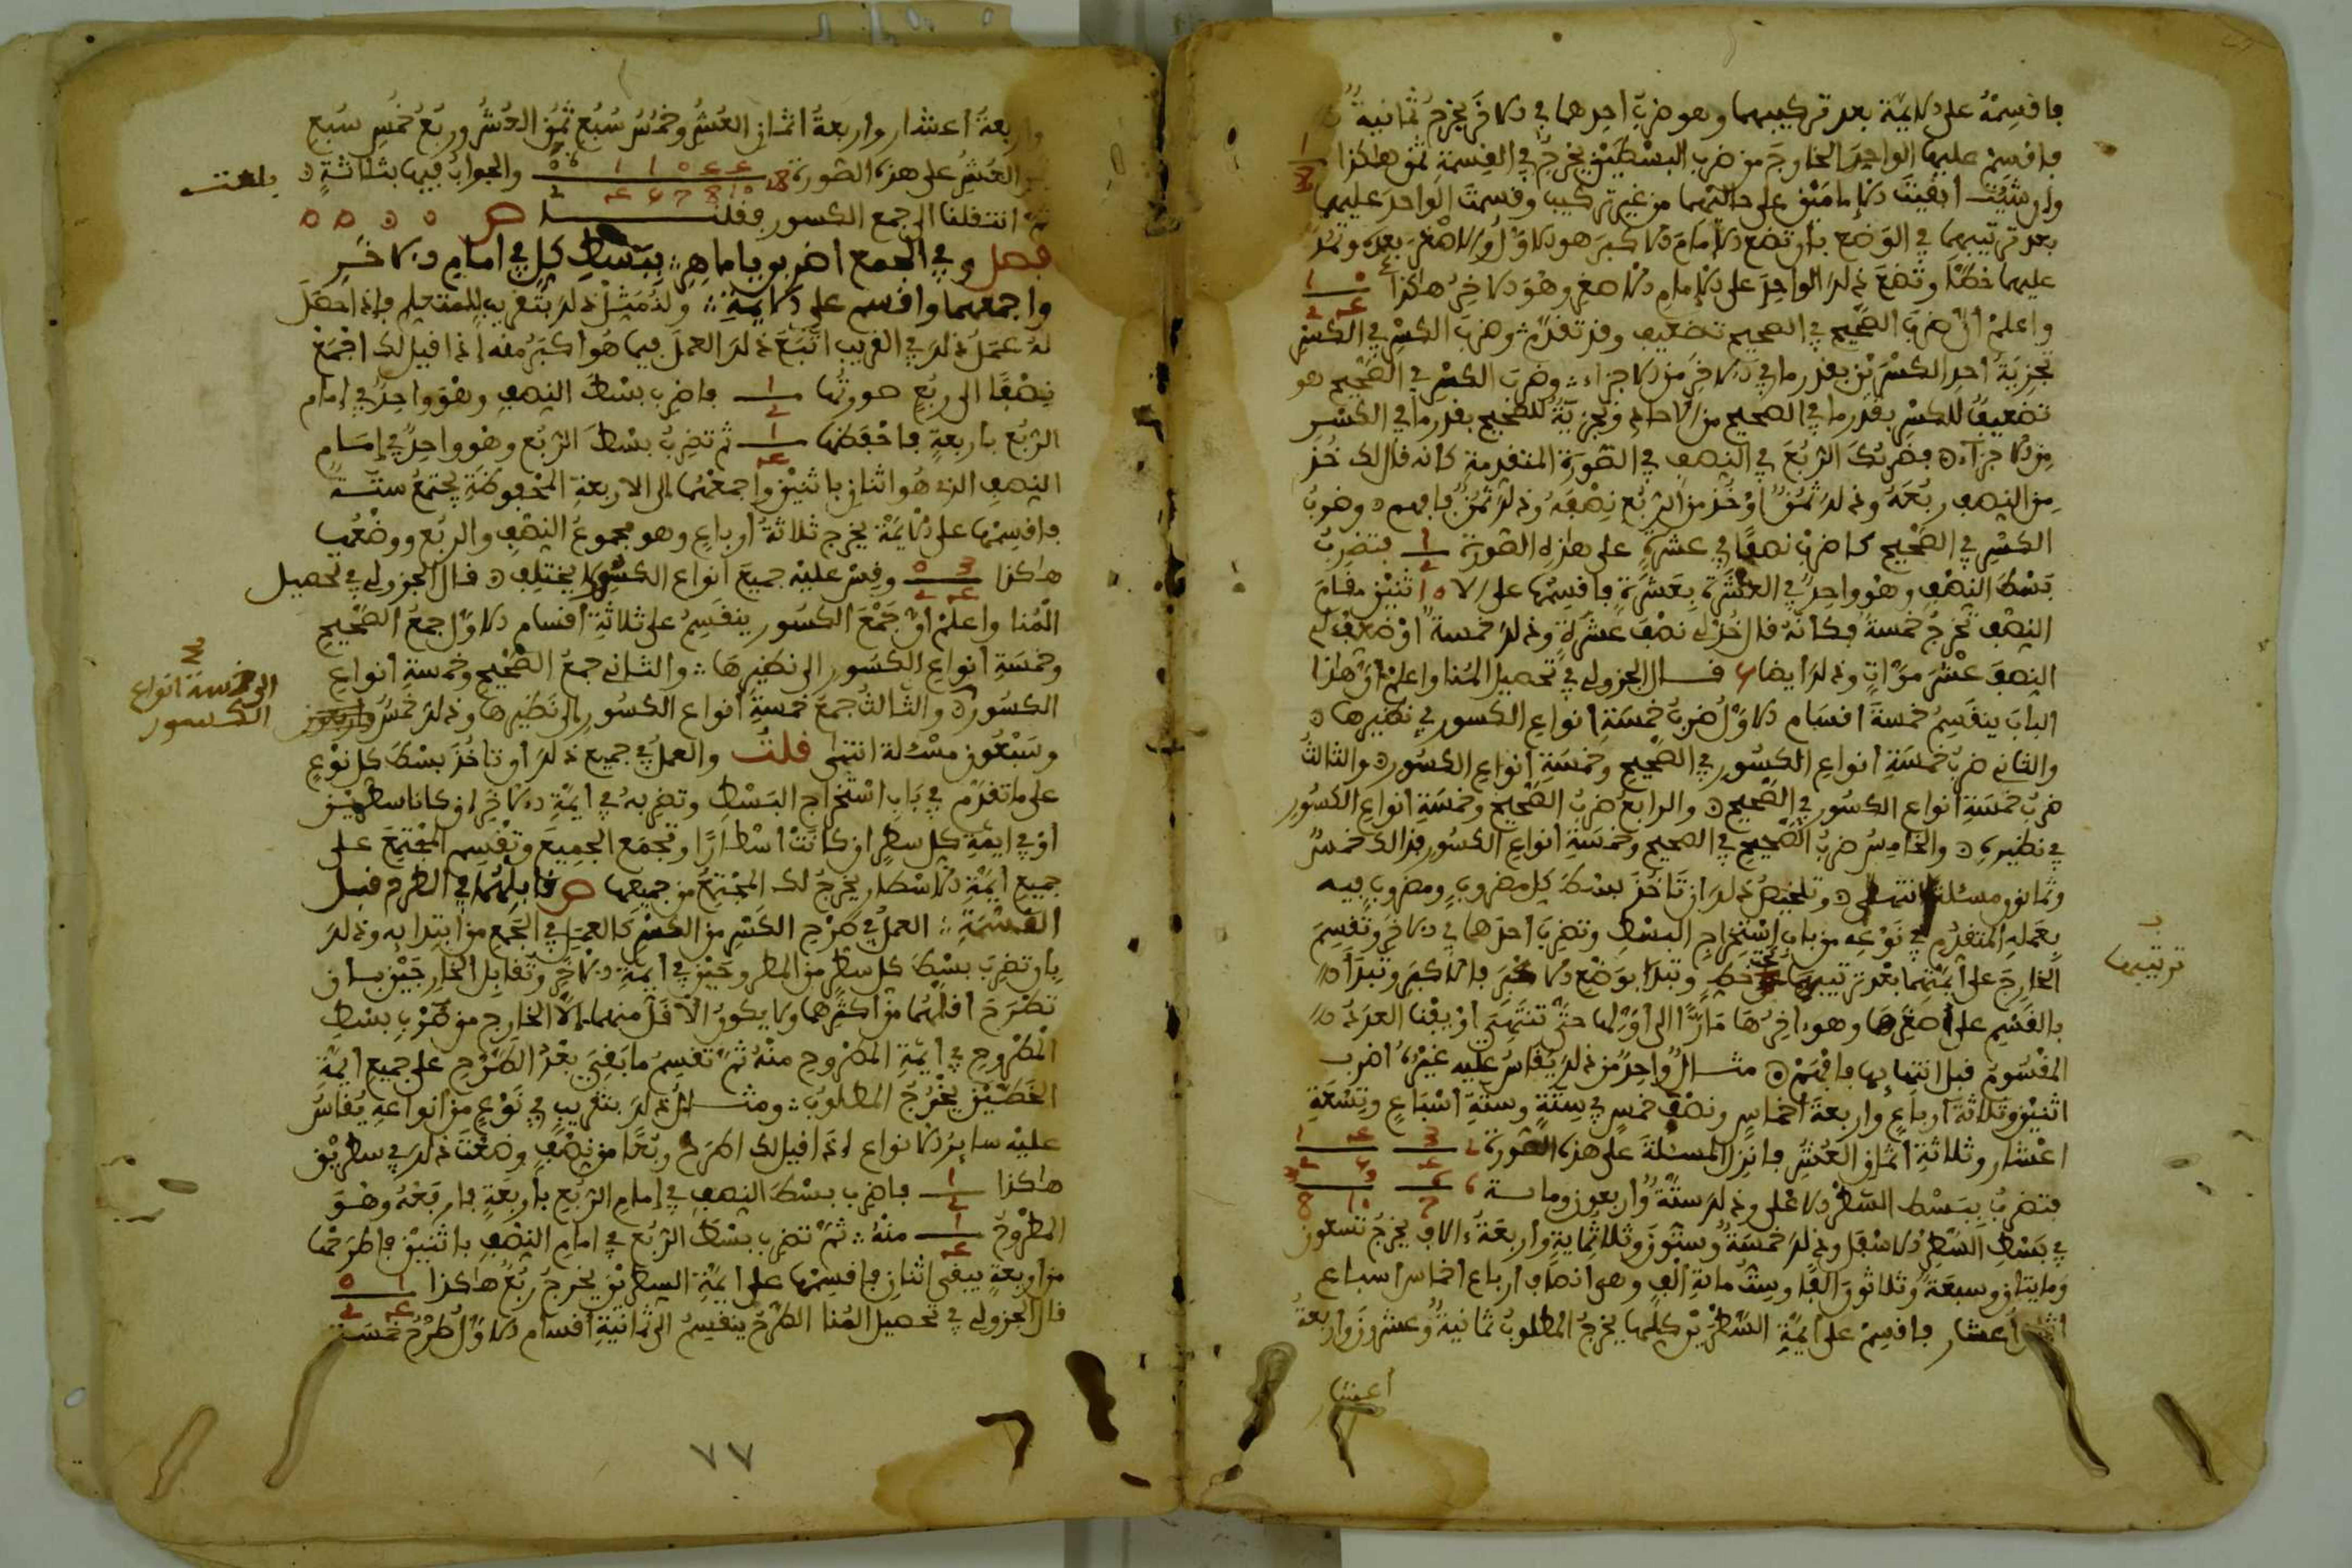 فاقسمه على الايمة بعد تركيبها وهو ضرب احدهما في الاخر يخرج ثمانية
فاقسم عليها الواحد الخارج من ضرب البسطين يخرج في القسمة ثمن هاكذا 1 8
وان شئت ابقيت الامامين على حالتهما من غير تركيب وقسمت الواحد عليهما
بعد ترتيبهما في الوضع بان تضع الامام الاكبر هو الاول والاصغر بعده وتمد
عليهما خطا وتضع ذلك الواحد على الامام الاصغر وهو الاخر هاكذا
واعلم ان ضرب الصحيح في الصحيح تضعيف وقد تقدم وضرب الكسر في الكسر
تجزية احد الكسرين بقدر ما في الاخر من الاجزاء وضرب الكسر في الصحيح هو
تضعيف للكسر بقدر ما في الصحيح من الاحاد وتجزية للصحيح بقدر ما في الكسر
من الاجزاء فضربك الربع في النصف في الصورة المتقدمة كانه قال لك خذ
من النصف ربعه وذلك ثمن او خذ من الربع نصفه وذلك ثمن فافهم وضرب
الكسر في الصحيح كاضرب نصفا في عشرة على هذه الصورة فتضرب
بسط النصف وهو واحد في العشرة بعشرة فاقسمها على الاثنين مقام
النصف تخرج خمسة فكانه قال خذ لي نصف عشرة وذلك خمسة او ضعف لي
النصف عشر مرات وذلك ايضا قال الجزولي في تحصيل المنا واعلم ان هذا
الباب ينقسم خمسة اقسام الاول ضرب خمسة انواع الكسور في نظيرها
والثاني ضرب خمسة انواع الكسور في الصحيح وخمسة انواع الكسور والثالث
ضرب خمسة انواع الكسور في الصحيح والرابع ضرب الصحيح وخمسة انواع الكسور
في نظيره والخامس ضرب الصحيح في الصحيح وخمسة انواع الكسور فذالك خمس
وثمانون مسئلة انتهى وتلخيص ذلك ان تاخذ بسط كل مضروب ومضروب فيه
بعمله المتقدم في نوعه من باب استخراج البسط وتضرب احدهما في الاخر وتقسم
الخارج على ايمتهما بعد ترتيبها تحت خط وتبدا بوضع الاكبر فالاكبر وتبدا
ترتيبها
بالقسم على اصغرها وهو اخرها مارا الى اولها حتى تنتهي او يفنا العدد
المقسوم قبل انتهايها فافهم مثال واحد من ذلك يقاس عليه غيره اضرب
اثنين وثلاثة ارباع واربعة اخماس ونصف خمس في ستة وستة اسباع وتسعة
اعشار وثلاثة اثمان العشر فانزل المسئلة على هذه الصورة
فتضرب بسط السطر الاعلى وذلك ستة واربعون وماية
في بسط السطر الاسفل وذلك خمسة وستون وثلاثماية واربعة الاف يخرج تسعون
ومايتان وسبعة وثلاثون الفا وستماية الف وهي انصاف ارباع اخماس اسباع
اثمان اعشار فاقسم على ايمة السطرين كلها يخرج المطلوب ثمانية وعشرون واربعة
اعشار
واربعة اعشار واربعة اثمان العشر وخمس سبع ثمن العشر وربع خمس سبع
ثمن العشر على هذه الصورة والجواب فيها بثلاثة
بلغت
ثم انتقلنا الى جمع الكسور فقلنا ص
فصل وفي الجمع اضربوا يا ماهر ببسط كل في امام الاخر
واجمعهما واقسم على الايمة ولنمثل ذلك بتقريب للمتعلم فاذا حصل
له عمل ذلك في القريب اتبع ذلك العمل فيما هو اكبر منه اذا قيل لك اجمع
نصفا الى ربع صورتها فاضرب بسط النصف وهو واحد في امام
الربع باربعة فاحفظها ثم تضرب بسط الربع وهو واحد في امام
النصف الذي هو اثنان باثنين واجمعهما الى الاربعة المحفوظة يجتمع ستة
فاقسمها على الايمة يخرج ثلاثة ارباع وهو مجموع النصف والربع ووضعها
هاكذا وقس عليه جميع انواع الكسور لا يختلف قال الجزولي في تحصيل
المنا واعلم ان جمع الكسور ينقسم على ثلاثة اقسام الاول جمع الصحيح
وخمسة انواع الكسور الى نظيرها والثاني جمع الصحيح وخمسة انواع
الى خمسة انواع
الكسور
الكسور والثالث جمع خمسة انواع الكسور الى نظيرها وذلك خمس واربعون
وسبعون مسئلة انتهى قلت والعمل في جميع ذلك ان تاخذ بسط كل نوع
على ما تقدم في باب استخراج البسط وتضربه في ايمة الاخر ان كانا سطرين
او في ايمة كل سطر ان كانت اسطارا وتجمع الجميع وتقسم المجتمع على
جميع ايمة الاسطار يخرج لك المجتمع من جميعها ص قابلهما في الطرح قبل
القسمة العمل في طرح الكسر من الكسر كالعمل في الجمع من ابتدايه وذلك
بان تضرب بسط كل سطر من المطروحين في ايمة الاخر وتقابل الخارجين بان
تطرح اقلهما من اكثرهما ولا يكون الاقل منهما الا الخارج من ضرب بسط
المطروح في ايمة المطروح منه ثم تقسم ما بقي بعد الطرح على جميع ايمة
الخطين يخرج المطلوب ومثال ذلك بتقريب في نوع من انواعه يقاس
عليه ساير الانواع اذا قيل لك اطرح ربعا من نصف وضعت ذلك في سطرين
هاكذا فاضرب بسط النصف في امام الربع باربعة فارفعه وهو
المطروح منه ثم تضرب بسط الربع في امام النصف باثنين فاطرحها
من اربعة يبقى اثنان فاقسمها على ايمة السطرين يخرج ربع هاكذا
قال الجزولي في تحصيل المنا الطرح ينقسم الى ثمانية اقسام الاول طرح خمسة
٧٧